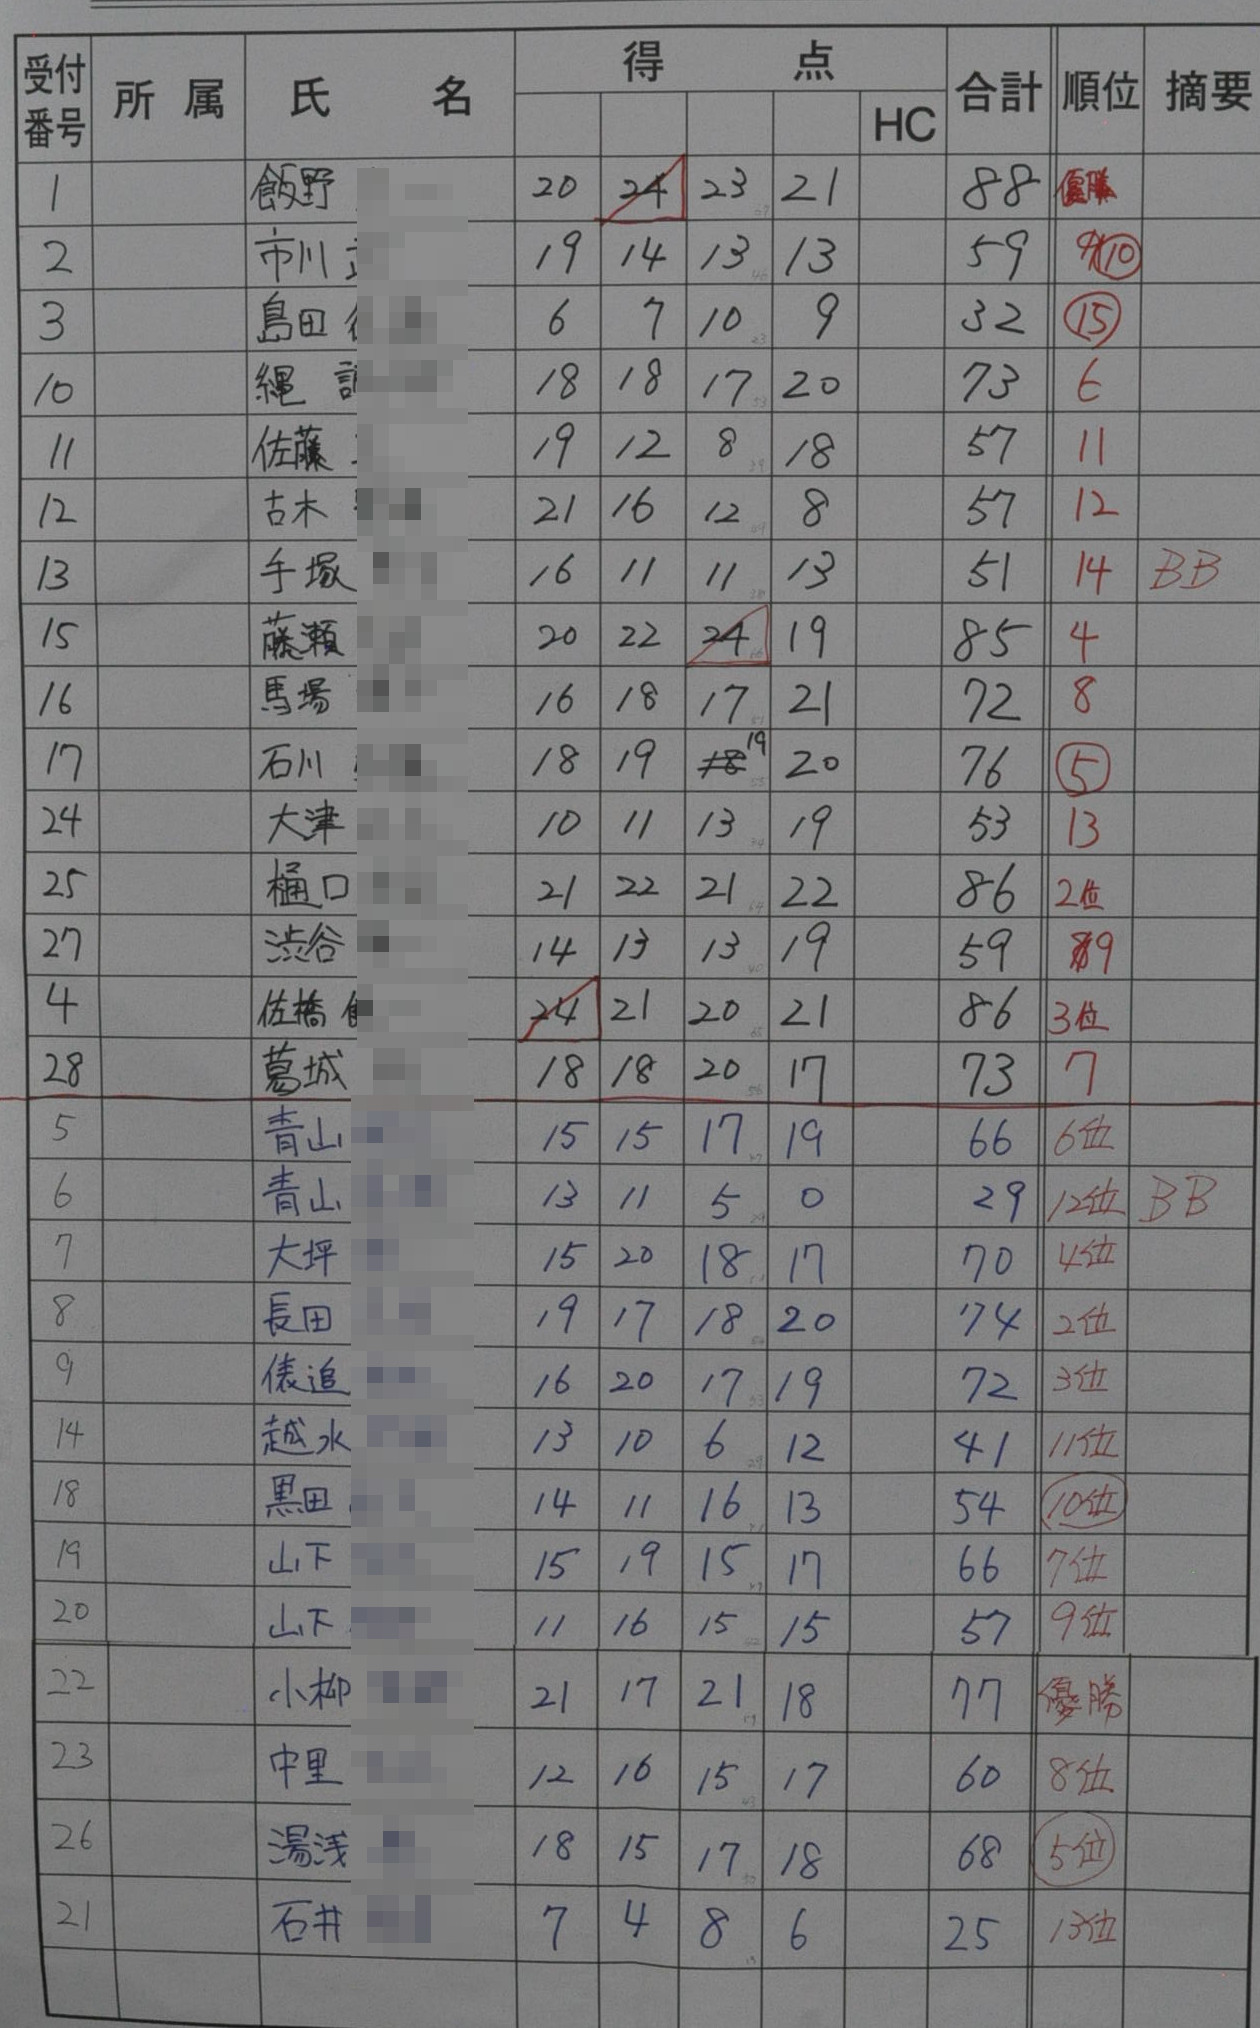 受付番号 所属 氏名 得点 HC 合計 順位 摘要
1 飯野 20 24 23 21 88 優勝
2 市川 19 14 13 13 59 10
3 島田 6 7 10 9 32 15
10 縄 18 18 17 20 73 6
11 佐藤 19 12 8 18 57 11
12 古木 21 16 12 8 57 12
13 手塚 16 11 11 13 51 14 BB
15 藤瀬 20 22 24 19 85 4
16 馬場 16 18 17 21 72 8
17 石川 18 19 18 19 20 76 5
24 大津 10 11 13 19 53 13
25 樋口 21 22 21 22 86 2位
27 渋谷 14 13 13 19 59 9
4 佐橋 24 21 20 21 86 3位
28 葛城 18 18 20 17 73 7
5 青山 15 15 17 19 66 6位
6 青山 13 11 5 0 29 12位 BB
7 大坪 15 20 18 17 70 4位
8 長田 19 17 18 20 74 2位
9 俵追 16 20 17 19 72 3位
14 越水 13 10 6 12 41 11位
18 黒田 14 11 16 13 54 10位
19 山下 15 19 15 17 66 7位
20 山下 11 16 15 15 57 9位
22 小柳 21 17 21 18 77 優勝
23 中里 12 16 15 17 60 8位
26 湯浅 18 15 17 18 68 5位
21 石井 7 4 8 6 25 13位